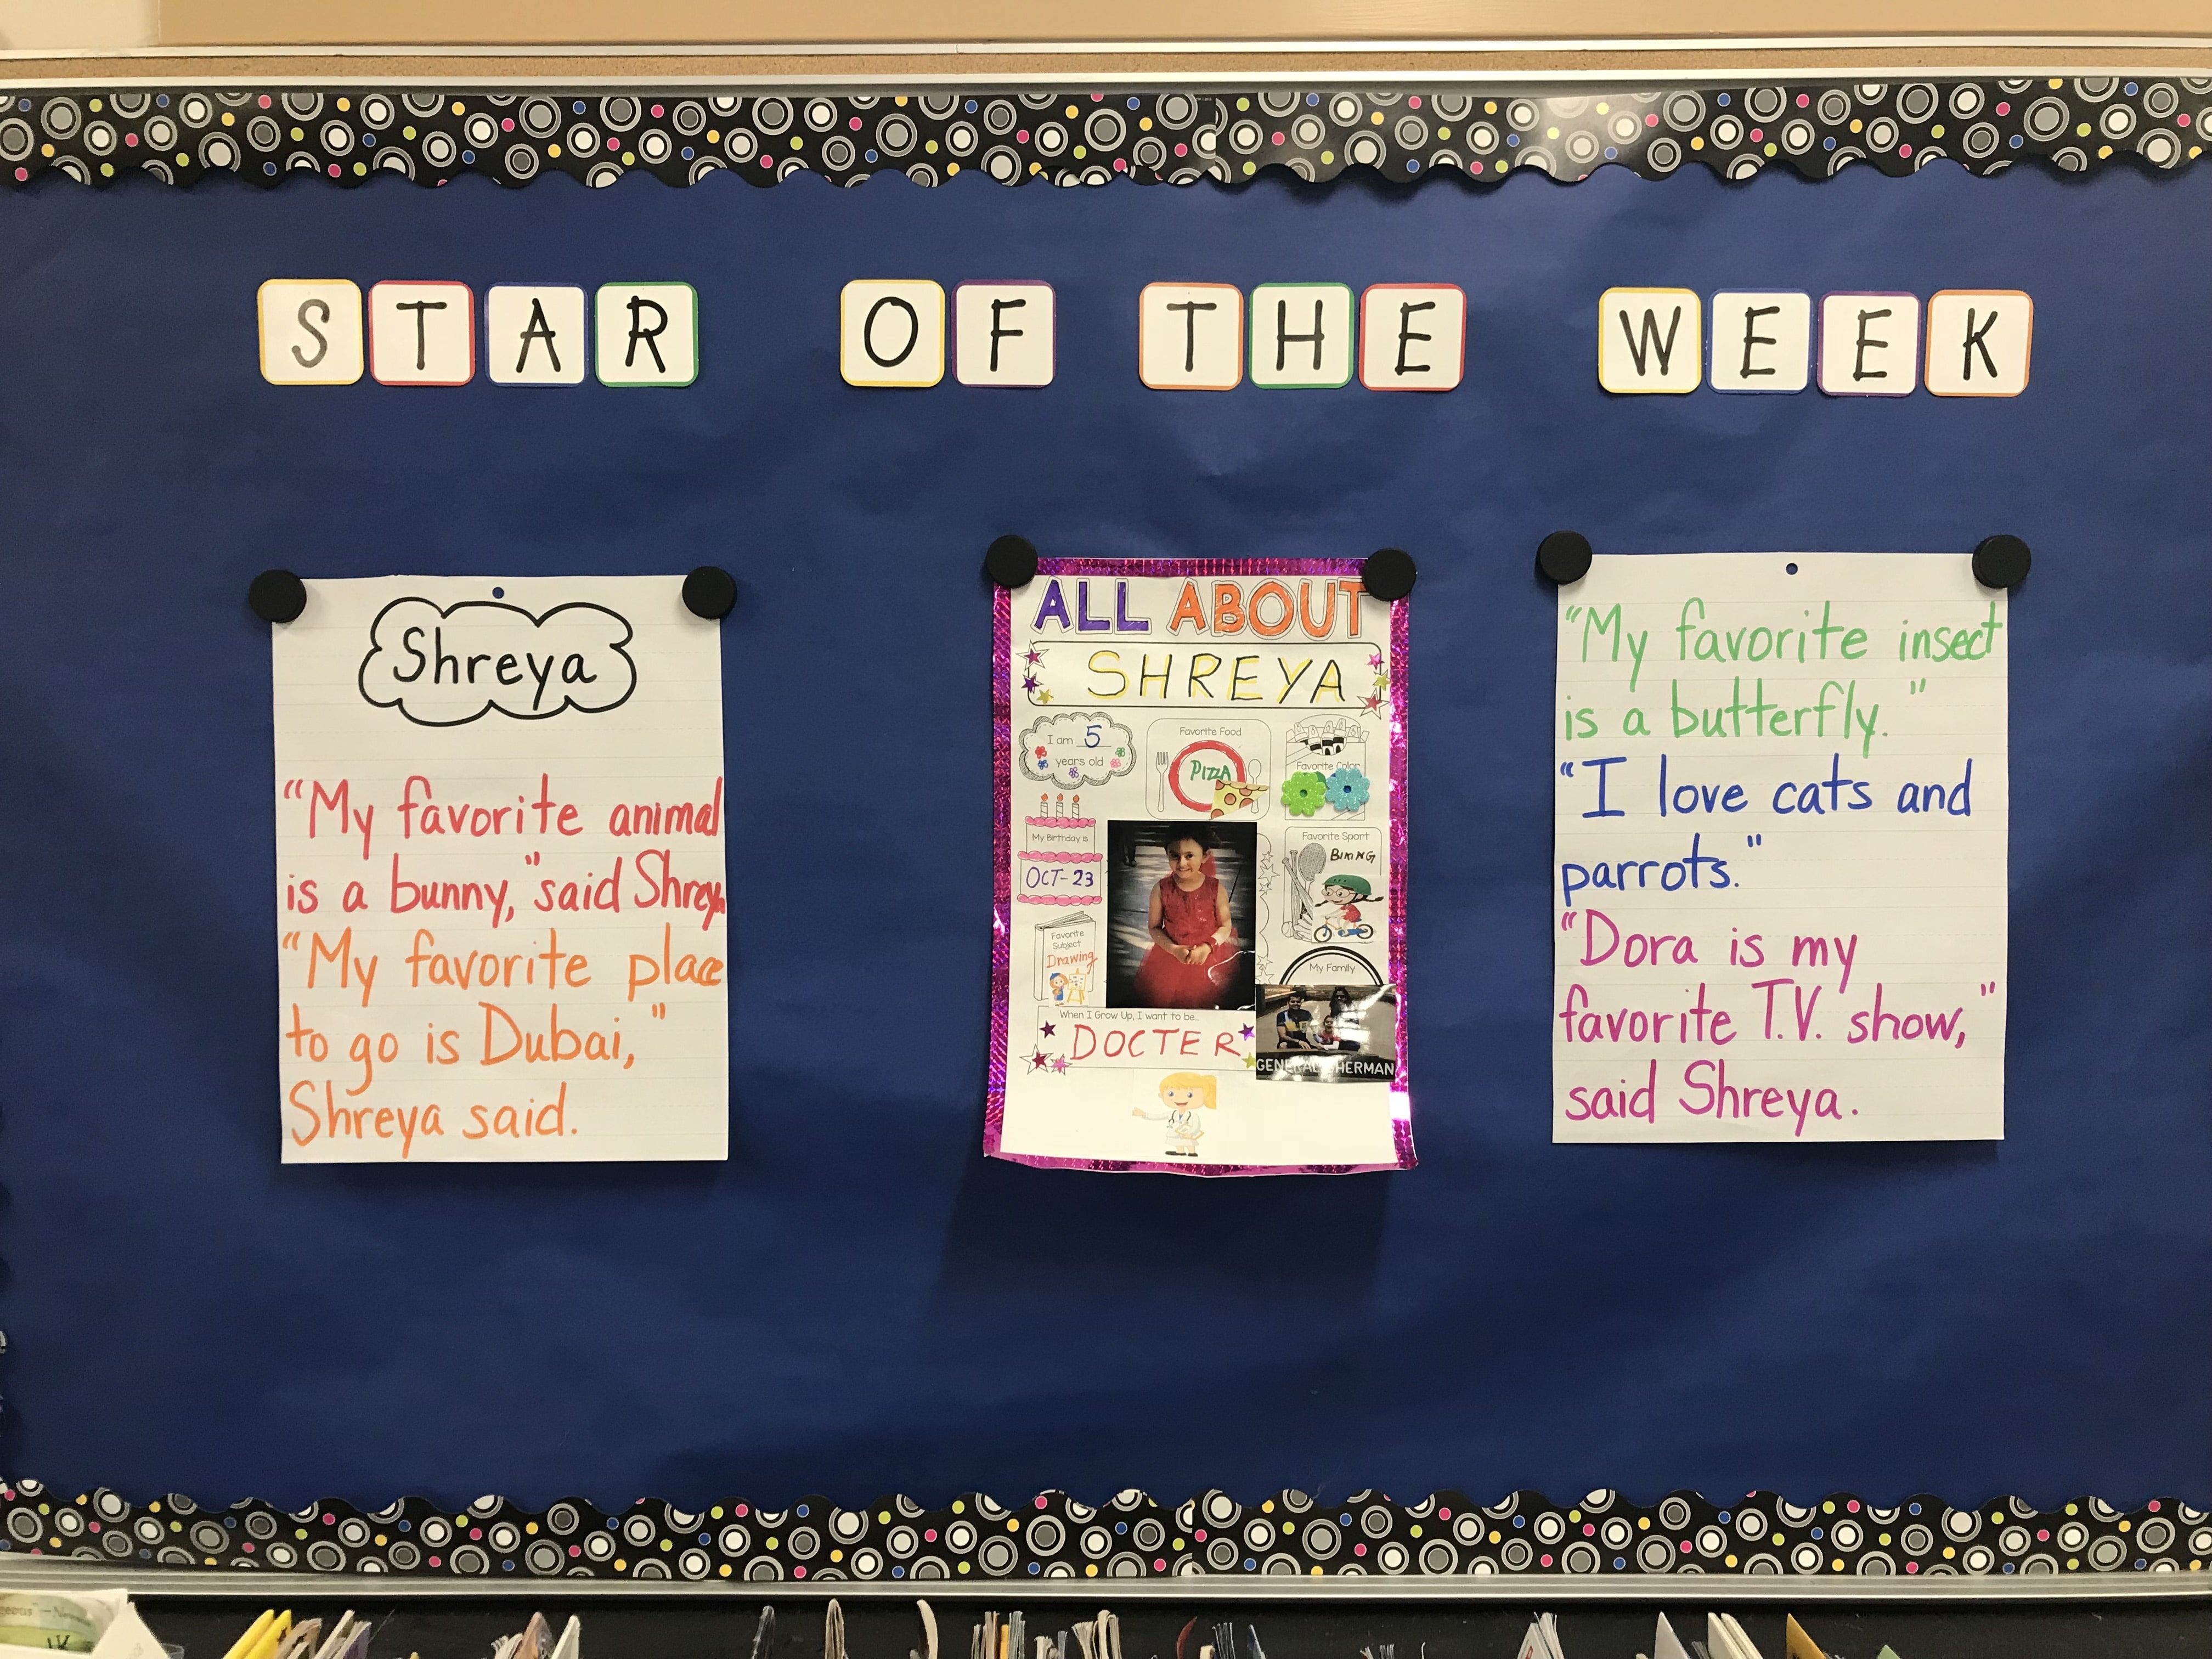 STAR OF THE WEEK
Shreya
"My favorite animal
is a bunny," said Shreya
"My favorite place
to go is Dubai,"
Shreya said.
ALL ABOUT
SHREYA
I am 5
years old
Favorite Food
PIZZA
Favorite Color
My Birthday is
OCT-23
Favorite Sport
BIKING
Favorite
Subject
Drawing
My Family
GENERAL SHERMAN
When I Grow Up, I want to be...
DOCTER
"My favorite insect
is a butterfly."
"I love cats and
parrots."
"Dora is my
favorite T.V. show,"
said Shreya.